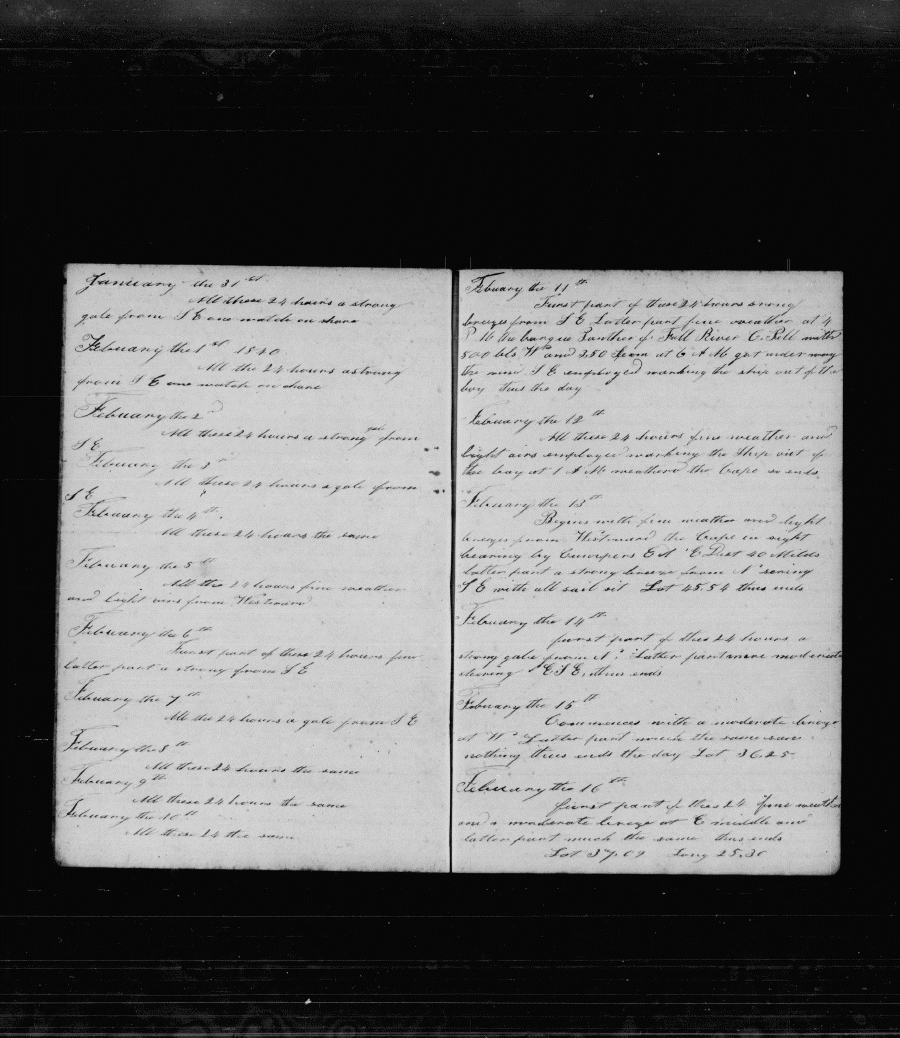 January the 31st
All these 24 hours a strong
gale from S E one watch on shore
Febuary the 1st 1840
All the 24 hours a strong
from S E one watch on shore
Febuary the 2
All these 24 hours a strong gale from
S E
Febuary the 3
All these 24 hours a gale from
S E
Febuary the 4th
All these 24 hours the same
Febuary the 5th
All the 24 hours fine weather
and light airs from Westward
Febuary the 6th
Furst part of these 24 hours fine
latter part a strong from S E
Febuary the 7th
All the 24 hours a gale from S E
Febuary the 8th
All these 24 hours the same
Febuary 9th
All these 24 hours the same
Febuary the 10th
All these 24 the same
Febuary the 11th
Furst part of these 24 hours strong
breezes from S E Latter part fine weather at 4
P M the barque Panther of Fall River C. Pell with
500 bls W and 250 at 6 A M got under way
the wind S E employed working the ship out of the
bay thus the day
Febuary the 12th
All these 24 hours fine weather and
light airs employed working the Ship out of
the bay at 1 A M weathered the Cape so ends
Febuary the 13th
Begins with fine weather and light
breezes from Westward the Cape in sight
bearing by Compass E N E Dist 40 Miles
latter part a strong breeze from N stering
S E with all sail sit Lat 45.54 thus ends
Febuary the 14th
furst part of thes 24 hours a
strong gale from N Latter part more moderate
steering E S E thus ends
Febuary the 15th
Commences with a moderate breeze
at W Latter part much the same saw
nothing thus ends the day Lat 36.25
Febuary the 16th
furst part of thes 24 fine weather
and a moderate breeze at E middle and
latter part much the same thus ends
Lat 37.09 Long 25.30